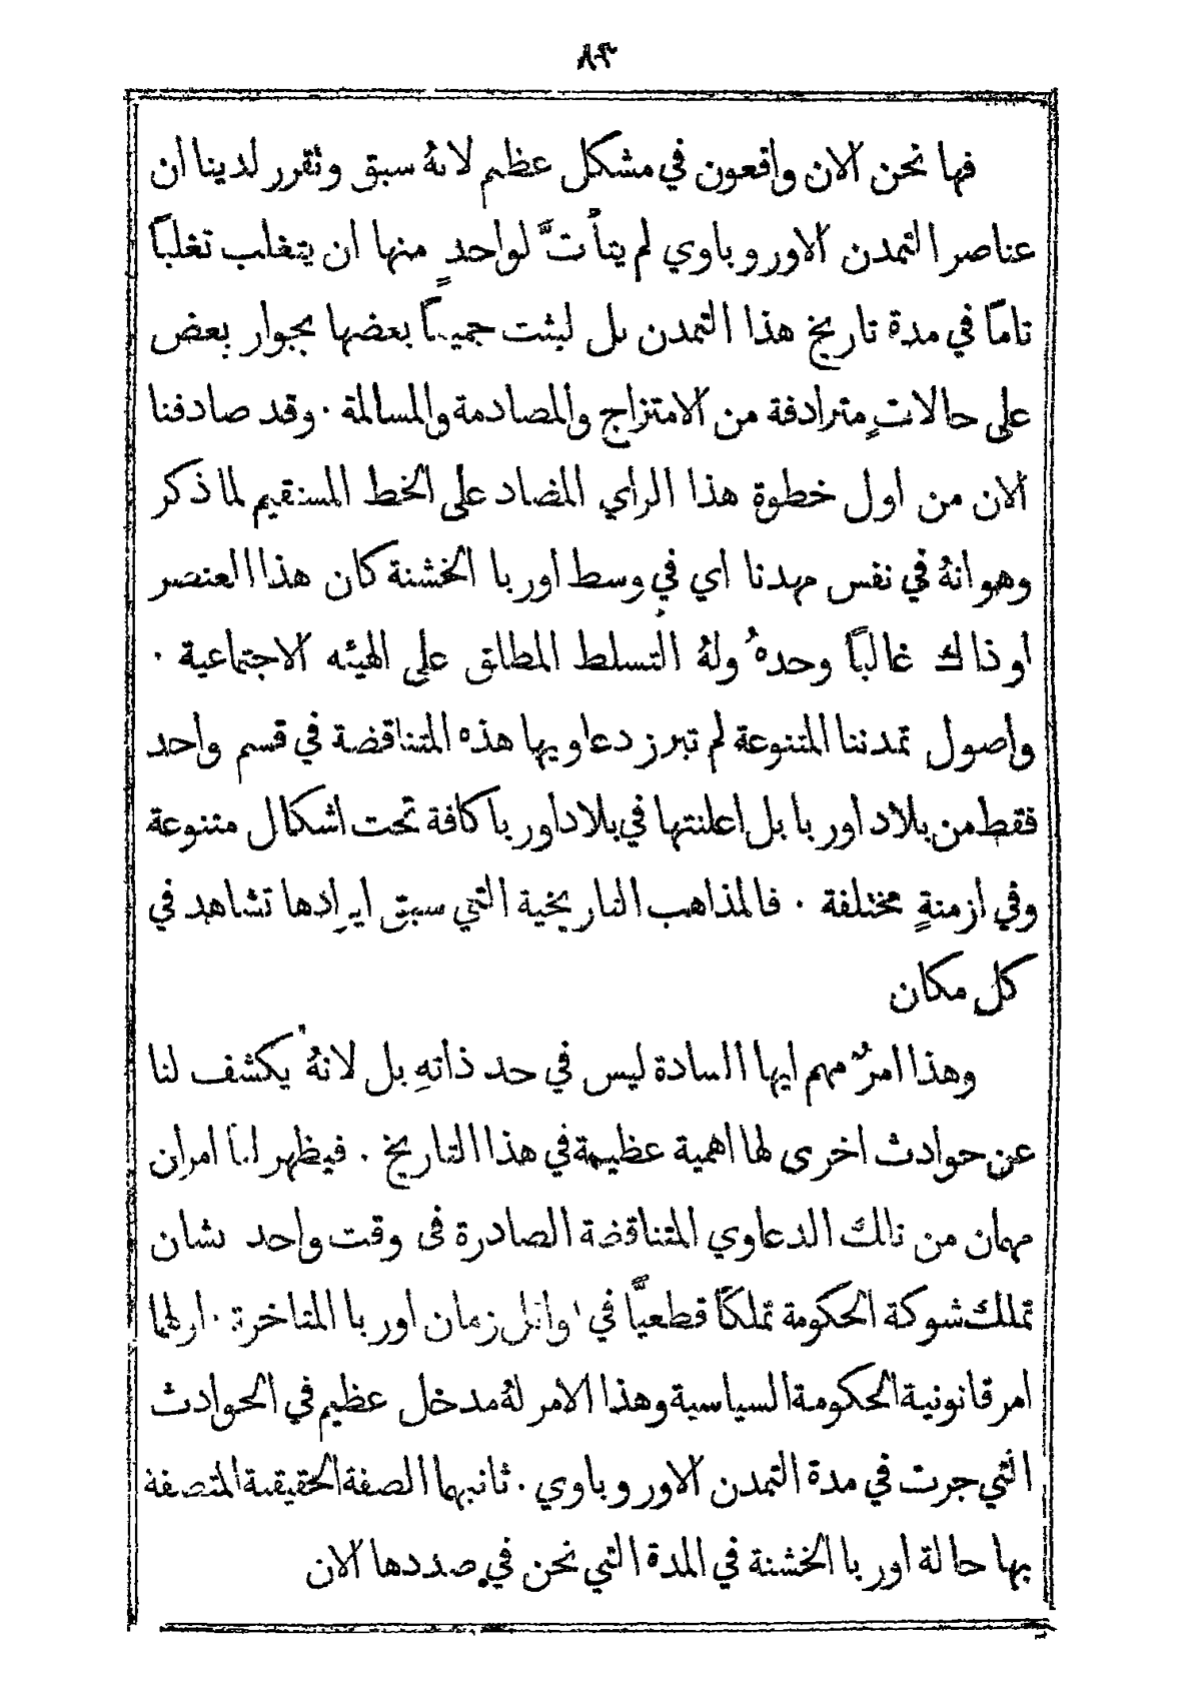 ٨٣
فها نحن الان واقعون في مشكل عظيم لانهُ سبق وتقرر لدينا ان
عناصر التمدن الاوروباوي لم يتأتَّ لواحدٍ منها ان يتغلب تغلبًا
تامًا في مدة تاريخ هذا التمدن بل لبثت جميعًا بعضها بجوار بعض
على حالاتٍ مترادفة من الامتزاج والمصادمة والمسالمة . وقد صادفنا
الان من اول خطوة هذا الراي المضاد على الخط المستقيم لما ذكر
وهو انهُ في نفس مهدنا اي في وسط اوربا الخشنة كان هذا العنصر
او ذاك غالبًا وحدهُ ولهُ التسلط المطلق على الهيئه الاجتماعية .
واصول تمدننا المتنوعة لم تبرز دعاويها هذه المتناقضة في قسم واحد
فقط من بلاد اوربا بل اعلنتها في بلاد اوربا كافة تحت اشكال متنوعة
وفي ازمنةٍ مختلفة . فالمذاهب التاريخية التي سبق ايرادها تشاهد في
كل مكان
وهذا امرٌ مهم ايها السادة ليس في حد ذاتهِ بل لانهُ يكشف لنا
عن حوادث اخرى لها اهمية عظيمة في هذا التاريخ . فيظهر لنا امران
مهمان من تلك الدعاوي المتناقضة الصادرة في وقت واحد بشان
تملك شوكة الحكومة تملكًا قطعيًّا في اوائل زمان اوربا المتاخرة . اولهما
امر قانونية الحكومة السياسية وهذا الامر لهُ مدخل عظيم في الحوادث
التي جرت في مدة التمدن الاوروباوي . ثانيهما الصفة الحقيقية المتصفة
بها حالة اوربا الخشنة في المدة التي نحن في صددها الان